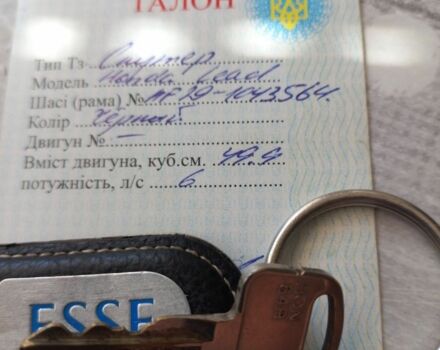 ТАЛОН
Тип Тз Скутер
Модель Honda Lead
Шасі (рама) № AF20-1043564
Колір Черный
Двигун № —
Вміст двигуна, куб.см. 49.9
потужність, л/с 6
ESSE